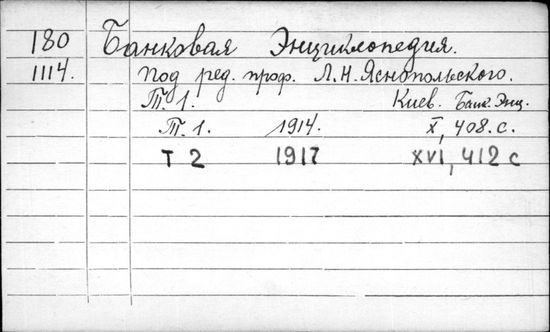 180 Банковая Энциклопедия.
1114. Под ред. проф. Л.Н. Яснопольского.
Т. 1. Киев. Банк. Энц.
Т. 1. 1914. X, 408. с.
Т 2 1917 XVI, 412 с